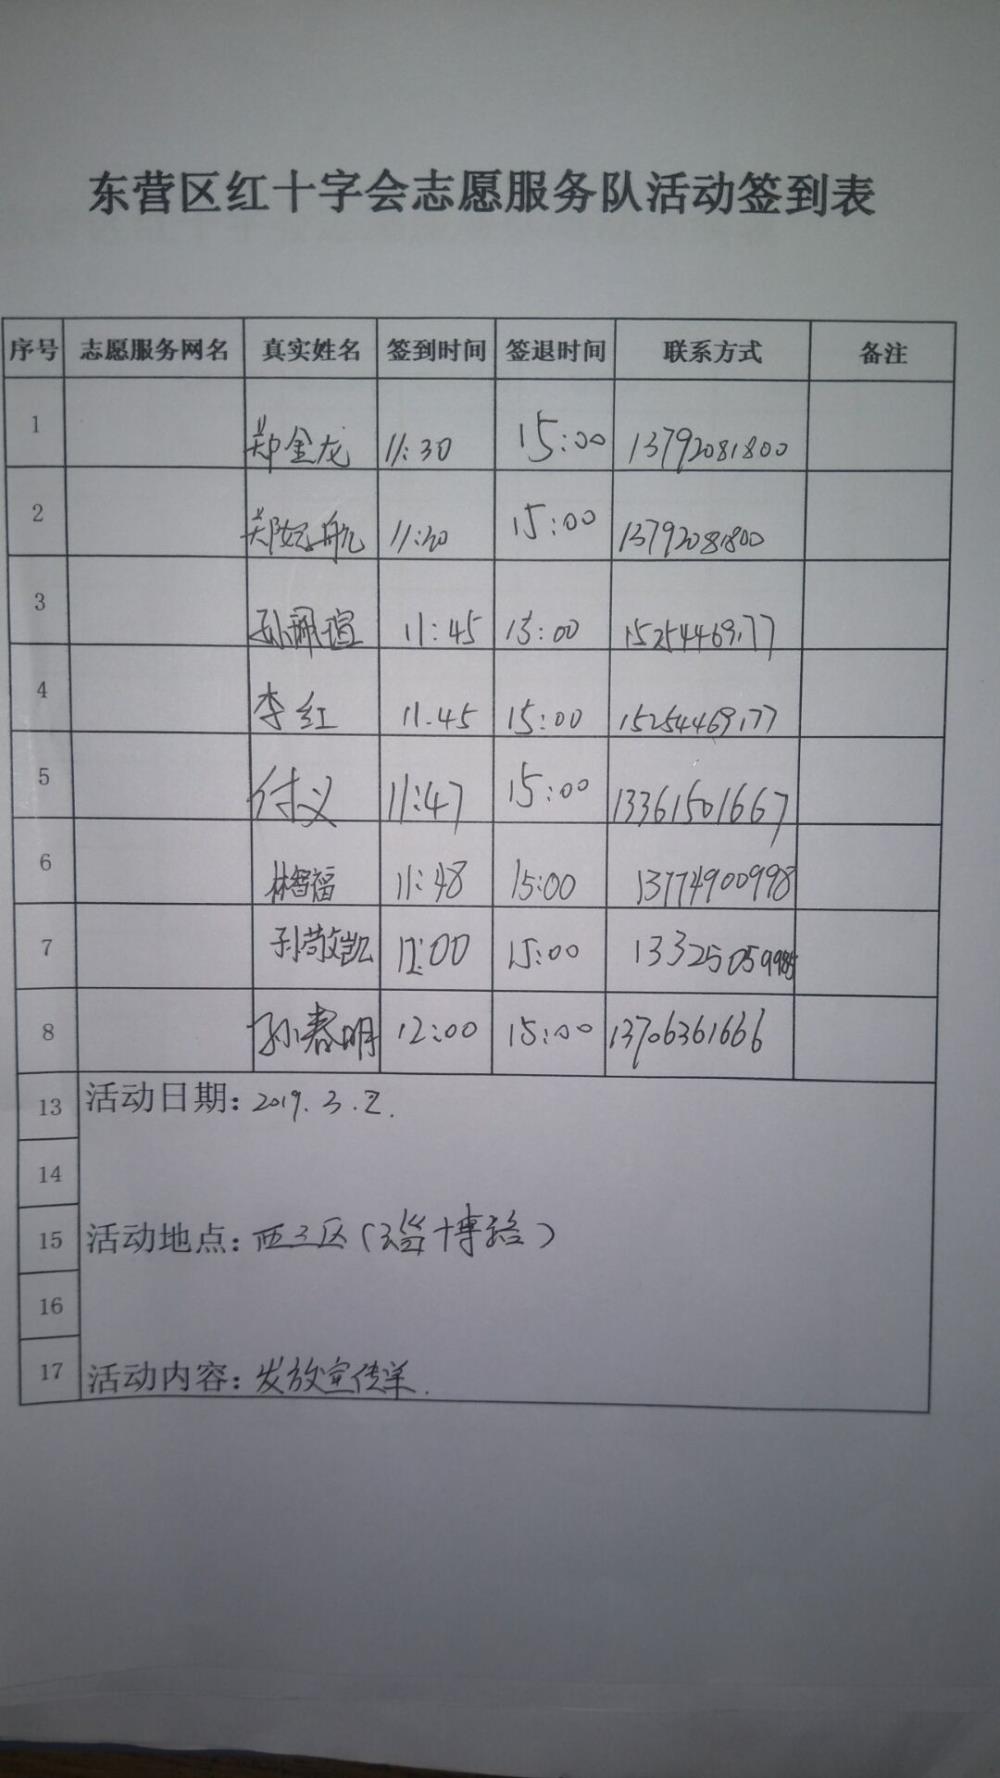 东营区红十字会志愿服务队活动签到表
序号 志愿服务网名 真实姓名 签到时间 签退时间 联系方式 备注
1 郑金龙 11:30 15:00 13792081800
2 郑妃航 11:30 15:00 13792081800
3 孙佩瑄 11:45 15:00 15254469177
4 李红 11.45 15:00 15254469177
5 付义 11:47 15:00 13361501667
6 林智福 11:48 15:00 13774900998
7 孙敬凯 12:00 15:00 1332505
8 孙春明 12:00 15:00 13706361666
13 活动日期: 2019.3.2.
14
15 活动地点: 西三区(淄博路)
16
17 活动内容: 发放宣传单.